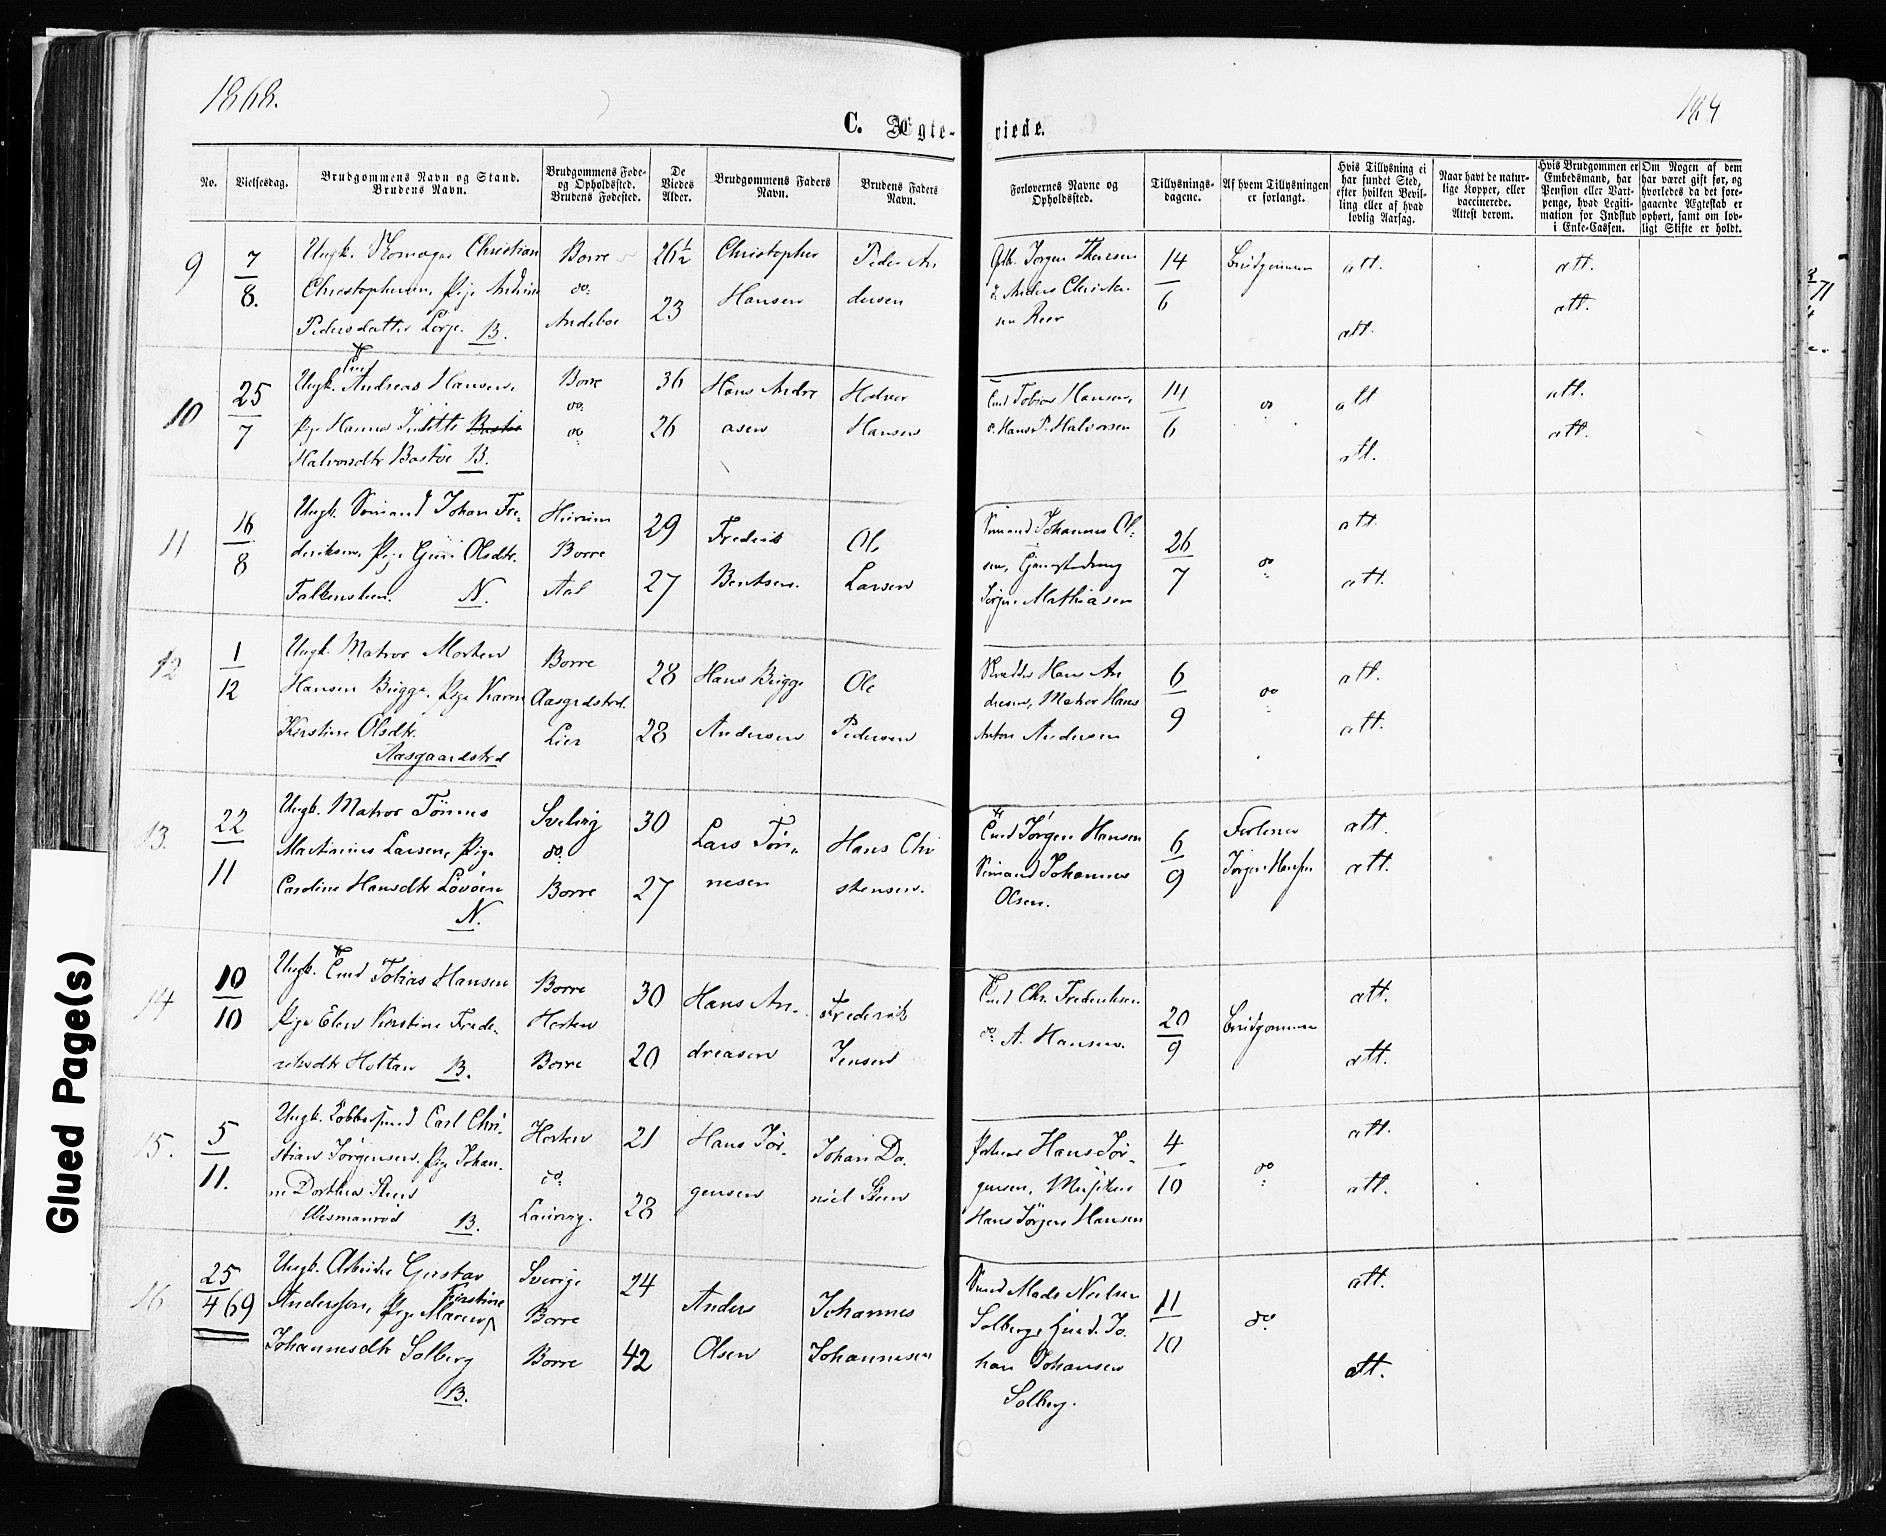 1868.
184
C. Ægte-
viede.
No.
Vielsesdag.
Brudgommens Navn og Stand.
Brudens Navn.
Brudgommens Føde-
og Opholdssted.
Brudens Fødested.
De
Viedes
Alder.
Brudgommens Faders
Navn.
Brudens Faders
Navn.
Forlovernes Navne og
Opholdssted.
Tillysnings-
dagene.
Af hvem Tillysningen
er forlangt.
Hvis Tillysning ei
har fundet Sted,
efter hvilken Bevil-
ling eller af hvad
lovlig Aarsag.
Naar havt de natur-
lige Kopper, eller
vaccinerede.
Attest derom.
Hvis Brudgommen er
Embedsmand, har
Pension eller Vart-
penge, hvad Legiti-
mation for Indskud
i Enke-Cassen.
Om Nogen af dem
har været gift før, og
hvorledes da det fore-
gaaende Ægteskab er
ophørt, samt om lov-
ligt Skifte er holdt.
9
7
8.
Ungk. Christian
Christophersen, Pige
Pedersdatter B.
Borre
do.
Andeboe
26½
23
Christopher
Hansen
Peder An
dersen
Jørgen
Anders Christen-
sen
14
6
Brudgommen
att.
att.
att.
att.
10
25
7
Ungk. Andreas Hansen,
Pige Hanna
Halvorsdtr Bastøe B.
Borre
do.
do
36
26
Hans Andre
asen
Halvor
Hansen
Tobias Hansen,
Hans P. Halvorsen
14
6
do
att
att.
att.
att.
11
16
8
Ungk. Sømand Johan Fre-
deriksen, Pige Guri Olsdtr.
Falkensteen. N.
Borre
Aal
29
27
Frederik
Bentsen.
Ole
Larsen
Sømand Johannes Ol-
sen,
Jørgen Mathiasen
26
7
do
att.
att.
12
1
12
Ungk. Matros Morten
Hansen Brigge, Pige Karen
Kirstine Olsdtr.
Aasgaardstrd
Borre
Aasgrdstrd.
Lier
28
28
Hans Brigge
Andersen
Ole
Pedersen
Hans An
dresen, Matros Hans
Anton Andersen
6
9
do
att.
att.
13.
22
11
Ungk. Matros Tønnes
Martinius Larsen, Pige
Caroline Hansdtr Løvøen
N.
Svelvig
do.
Borre
30
27
Lars Tøn-
nesen
Hans Chri
stensen.
Tmd Jørgen Hansen
Sømand Johannes
Olsen.
6
9
Forlover
Jørgen Hansen
att.
att.
14
10
10
Ungk. Tmd Tobias Hansen
Pige Elen Kirstine Frede-
riksdtr Holtan B.
Borre
Horten
Borre
30
20
Hans An-
dreasen
Frederik
Jensen
Tmd Chr. Frederiksen
do A. Hansen.
20
9
Brudgommen
att.
att.
15.
5
11.
Ungk. Kobbersmed Carl Chri-
stian Jørgensen, Pige Johan-
ne Dorthea Steen
B.
Horten
do.
Laurvig.
21
28
Hans Jør-
gensen
Johan Da-
niel Steen
Hans Jør-
gensen,
Hans Jørgen Hansen
4
10
do
att.
att.
16
25
4 69
Ungk. Arbeider Gustav
Andersson, Pige Maren Kirstine
Johannesdtr Solberg
B.
Sverige
Borre
Borre
24
42
Anders
Olsen
Johannes
Johannesen
Smed Mads Nielsen
Solberg, Smed Jo-
han Johansen
Solberg.
11
10
do
att.
att.
Glued Page(s)